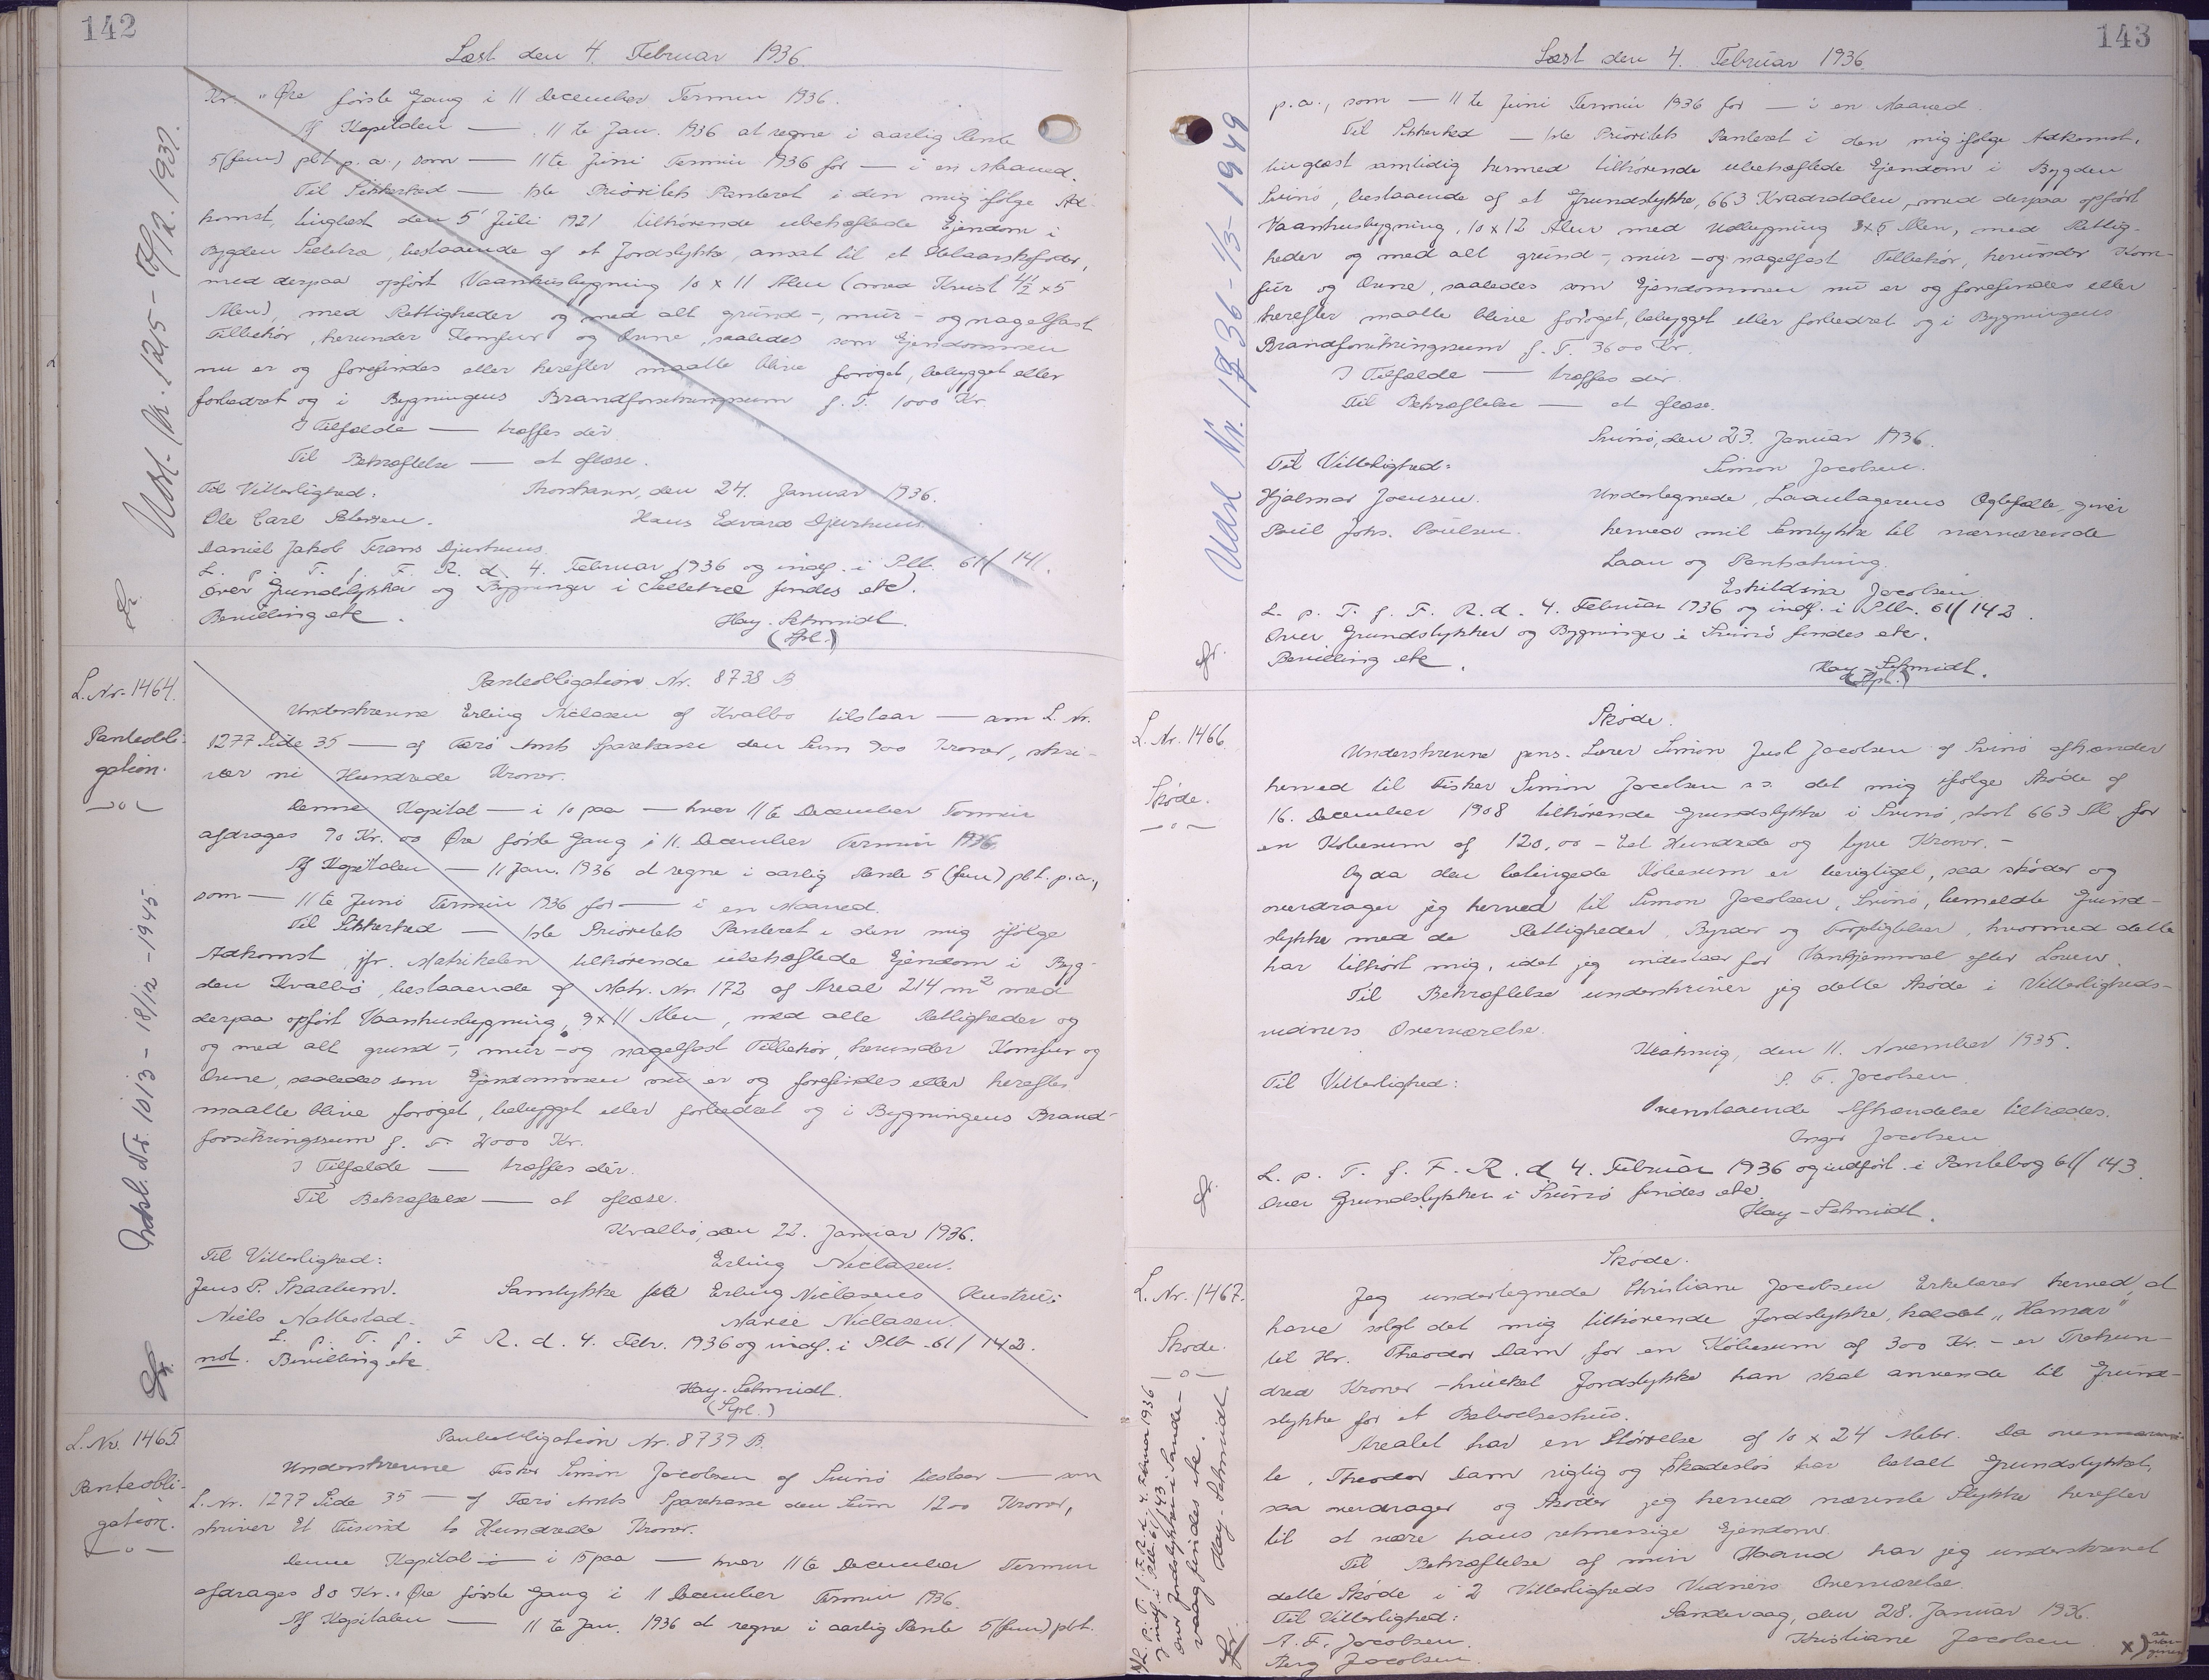 142
Læst den 4. Februar 1936.
Kr. " Øre første Gang i 11 December Termin 1936.
Af Kapitalen — 11 te Jan. 1936 at regne i aarlig Rente
5 (fem) pCt. p. a., som — 11 te Juni Termin 1936 for — i en Maaned.
Til Sikkerhed — 1ste Prioritets Panteret i den mig ifølge Ad-
komst, tinglæst den 5' Juli 1921 tilhørende ubehæftede Ejendom i
Bygden Selletræ, bestaaende af et Jordstykke, ansat til et Helaarsfoder,
med derpaa opført Vaanhusbygning 10 x 11 Alen (med Kvist 4½ x 5
Alen), med Rettigheder og med alt grund-, mur- og nagelfast
Tilbehør, herunder Komfur og Ovne, saaledes som Ejendommen
nu er og forefindes eller herefter maatte blive forøget, bebygget eller
forbedret og i Bygningens Brandforsikringssum f. T. 1000 Kr.
I Tilfælde — træffes dér.
Til Bekræftelse — et flæse.
Til Vitterlighed: Thorshavn, den 24. Januar 1936.
Ole Carl Petersen. Hans Edvard Djurhuus.
Daniel Jakob Frans Djurhuus.
L. p. T. f. F. R. d. 4. Februar 1936 og indf. i Ptb. 61/141.
Over Grundstykker og Bygninger i Selletræ findes etc.
Bevilling etc. Hay-Schmidt.
(Spl.)
Udsl. Nr. 1215 - 5/12. 1937.
L. Nr. 1464.
Panteobli-
gation.
Panteobligation Nr. 8738 B
Underskrevne Erling Niclasen af Kvalbø tilstaar — som L. Nr.
1277 Side 35 — af Færø Amts Sparekasse den Sum 900 Kroner, skri-
ver ni Hundrede Kroner.
Denne Kapital — i 10 paa — hver 11 te December Termin
afdrages 90 Kr. 00 Øre første Gang i 11. December Termin 1936.
Af Kapitalen — 11 Jan. 1936 at regne i aarlig Rente 5 (fem) pCt. p. a.,
som — 11 te Juni Termin 1936 for — i en Maaned.
Til Sikkerhed — 1ste Prioritets Panteret i den mig ifølge
Adkomst, jfr. Matrikelen tilhørende ubehæftede Ejendom i Byg-
den Kvalbø, bestaaende af Matr. Nr. 172 af Areal 214 m² med
derpaa opført Vaanhusbygning, 9 x 11 Alen, med alle Rettigheder og
og med alt grund-, mur- og nagelfast Tilbehør, herunder Komfur og
Ovne, saaledes som Ejendommen nu er og forefindes eller herefter
maatte blive forøget, bebygget eller forbedret og i Bygningens Brand-
forsikringssum f. T. 2000 Kr.
I Tilfælde — træffes dér.
Til Bekræftelse — et flæse.
Kvalbø, den 22. Januar 1936.
Til Vitterlighed: Erling Niclasen.
Jens P. Skaalum. Samtykke som Erling Niclasens Hustru:
Niels Nattestad. Marie Niclasen.
L. p. T. f. F. R. d. 4. Febr. 1936 og indf. i Ptb. 61/142.
not. Bevilling etc.
Hay-Schmidt.
(Spl.)
Udsl. Nr. 1013 - 18/12 - 1945.
L. Nr. 1465.
Panteobli-
gation.
Panteobligation Nr. 8739 B.
Underskrevne Fisker Simon Jacobsen af Svinø tilstaar — som
L. Nr. 1277 Side 35 — af Færø Amts Sparekasse den Sum 1200 Kroner,
skriver Et Tusind to Hundrede Kroner.
Denne Kapital — i 15 paa — hver 11 te December Termin
afdrages 80 Kr. " Øre første Gang i 11 December Termin 1936.
Af Kapitalen — 11 te Jan. 1936 at regne i aarlig Rente 5 (fem) pCt.
143
Læst den 4. Februar 1936.
p. a., som — 11 te Juni Termin 1936 for — i en Maaned.
Til Sikkerhed — 1ste Prioritets Panteret i den mig ifølge Adkomst,
tinglæst samtidig hermed tilhørende ubehæftede Ejendom i Bygden
Svinø, bestaaende af et Grundstykke, 663 Kvadratalen, med derpaa opført
Vaanhusbygning, 10 x 12 Alen med Udbygning 3 x 5 Alen, med Rettig-
heder og med alt grund-, mur- og nagelfast Tilbehør, herunder Kom-
fur og Ovne, saaledes som Ejendommen nu er og forefindes eller
herefter maatte blive forøget, bebygget eller forbedret og i Bygningens
Brandforsikringssum f. T. 3600 Kr.
I Tilfælde — træffes dér.
Til Bekræftelse — et flæse.
Svinø, den 23. Januar 1936.
Til Vitterlighed: Simon Jacobsen.
Hjalmar Joensen. Undertegnede, Laantagerens Ægtefælle, giver
Poul Johs. Poulsen. herved mit Samtykke til nærværende
Laan og Pantsætning.
Eskildina Jacobsen
L. p. T. f. F. R. d. 4. Februar 1936 og indf. i Ptb. 61/142.
Over Grundstykker og Bygninger i Svinø findes etc.
Bevilling etc. Hay-Schmidt.
(Spl.)
L. Nr. 1466.
Skøde.
Skøde.
Underskrevne pens. Lærer Simon Just Jacobsen af Svinø afhænder
herved til Fisker Simon Jacobsen s.s. det mig ifølge Skøde af
16. December 1908 tilhørende Grundstykke i Svinø, stort 663 Al for
en Købesum af 120,00 - Eet Hundrede og tyve Kroner. -
Og da den betingede Købesum er berigtiget, saa skøder og
overdrager jeg herved til Simon Jacobsen, Svinø, bemeldte Grund-
stykke med de Rettigheder, Byrder og Forpligtelser, hvormed dette
har tilhørt mig, idet jeg indestaar for Vanhjemmel efter Loven.
Til Bekræftelse underskriver jeg dette Skøde i Vitterligheds-
vidners Overværelse.
Klaksvig, den 11. November 1935.
Til Vitterlighed: S. F. Jacobsen.
Ovenstaaende Afhændelse tiltrædes.
Inger Jacobsen
L. p. T. f. F. R. d. 4. Februar 1936 og indført i Pantebog 61/143.
Over Grundstykker i Svinø findes etc.
Hay-Schmidt.
L. Nr. 1467.
Skøde.
Skøde.
Jeg undertegnede Christiane Jacobsen Erkelærer herved, at
have solgt det mig tilhørende Jordstykke, kaldet "Hamar"
til Hr. Theodor Dam, for en Købesum af 300 Kr. - er Trehun-
dred Kroner - hvilket Jordstykke han skal anvende til Grund-
stykke for et Beboelseshus.
Arealet har en Størrelse af 10 x 24 Metr. Da
te, Theodor Dam rigtig og Skadesløs har betalt Grundstykket,
saa overdrager og Skøder jeg herved nævnte Stykke herefter
til at være hans retmessige Ejendom.
Til Bekræftelse af min Haand har jeg underskrevet
dette Skøde i 2 Vitterligheds Vidners Overværelse.
Til Vitterlighed: Sandevaag, den 28. Januar 1936.
A. F. Jacobsen. Kristiane Jacobsen x)
Berg Jacobsen.
L. p. T. f. F. R. d. 4. Februar 1936
og indf. i Ptb. 61/143.
Over Jordstykker i Sande-
vaag findes etc.
Hay-Schmidt.